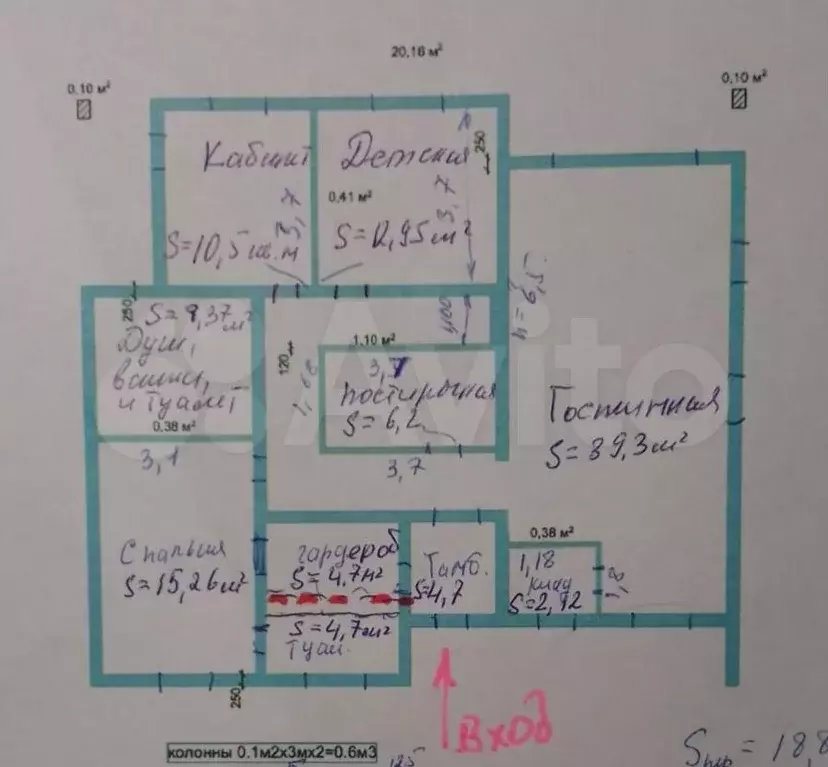 20,16 м²
0,10 м²
0,10 м²
Кабинет
Детская
250
0,41 м²
3,7
3,7
S=10,5 кв.м
S=12,95 м²
h=6,5
250
S=9,37 м²
Душ,
ванна,
и туалет
0,38 м²
400
1,10 м²
120
1,60
3,7
Постирочная
S=6,2
3,7
Гостинная
S=39,3 м²
3,1
Спальня
S=15,26 м²
гардероб
S=4.7 м²
S=4,7 м²
Туал.
Тамб.
S=4,7
0,38 м²
1,18
клад
S=2,92
1,8
250
Вход
Avito
колонны 0.1м2х3мх2=0.6м3
= 18,8